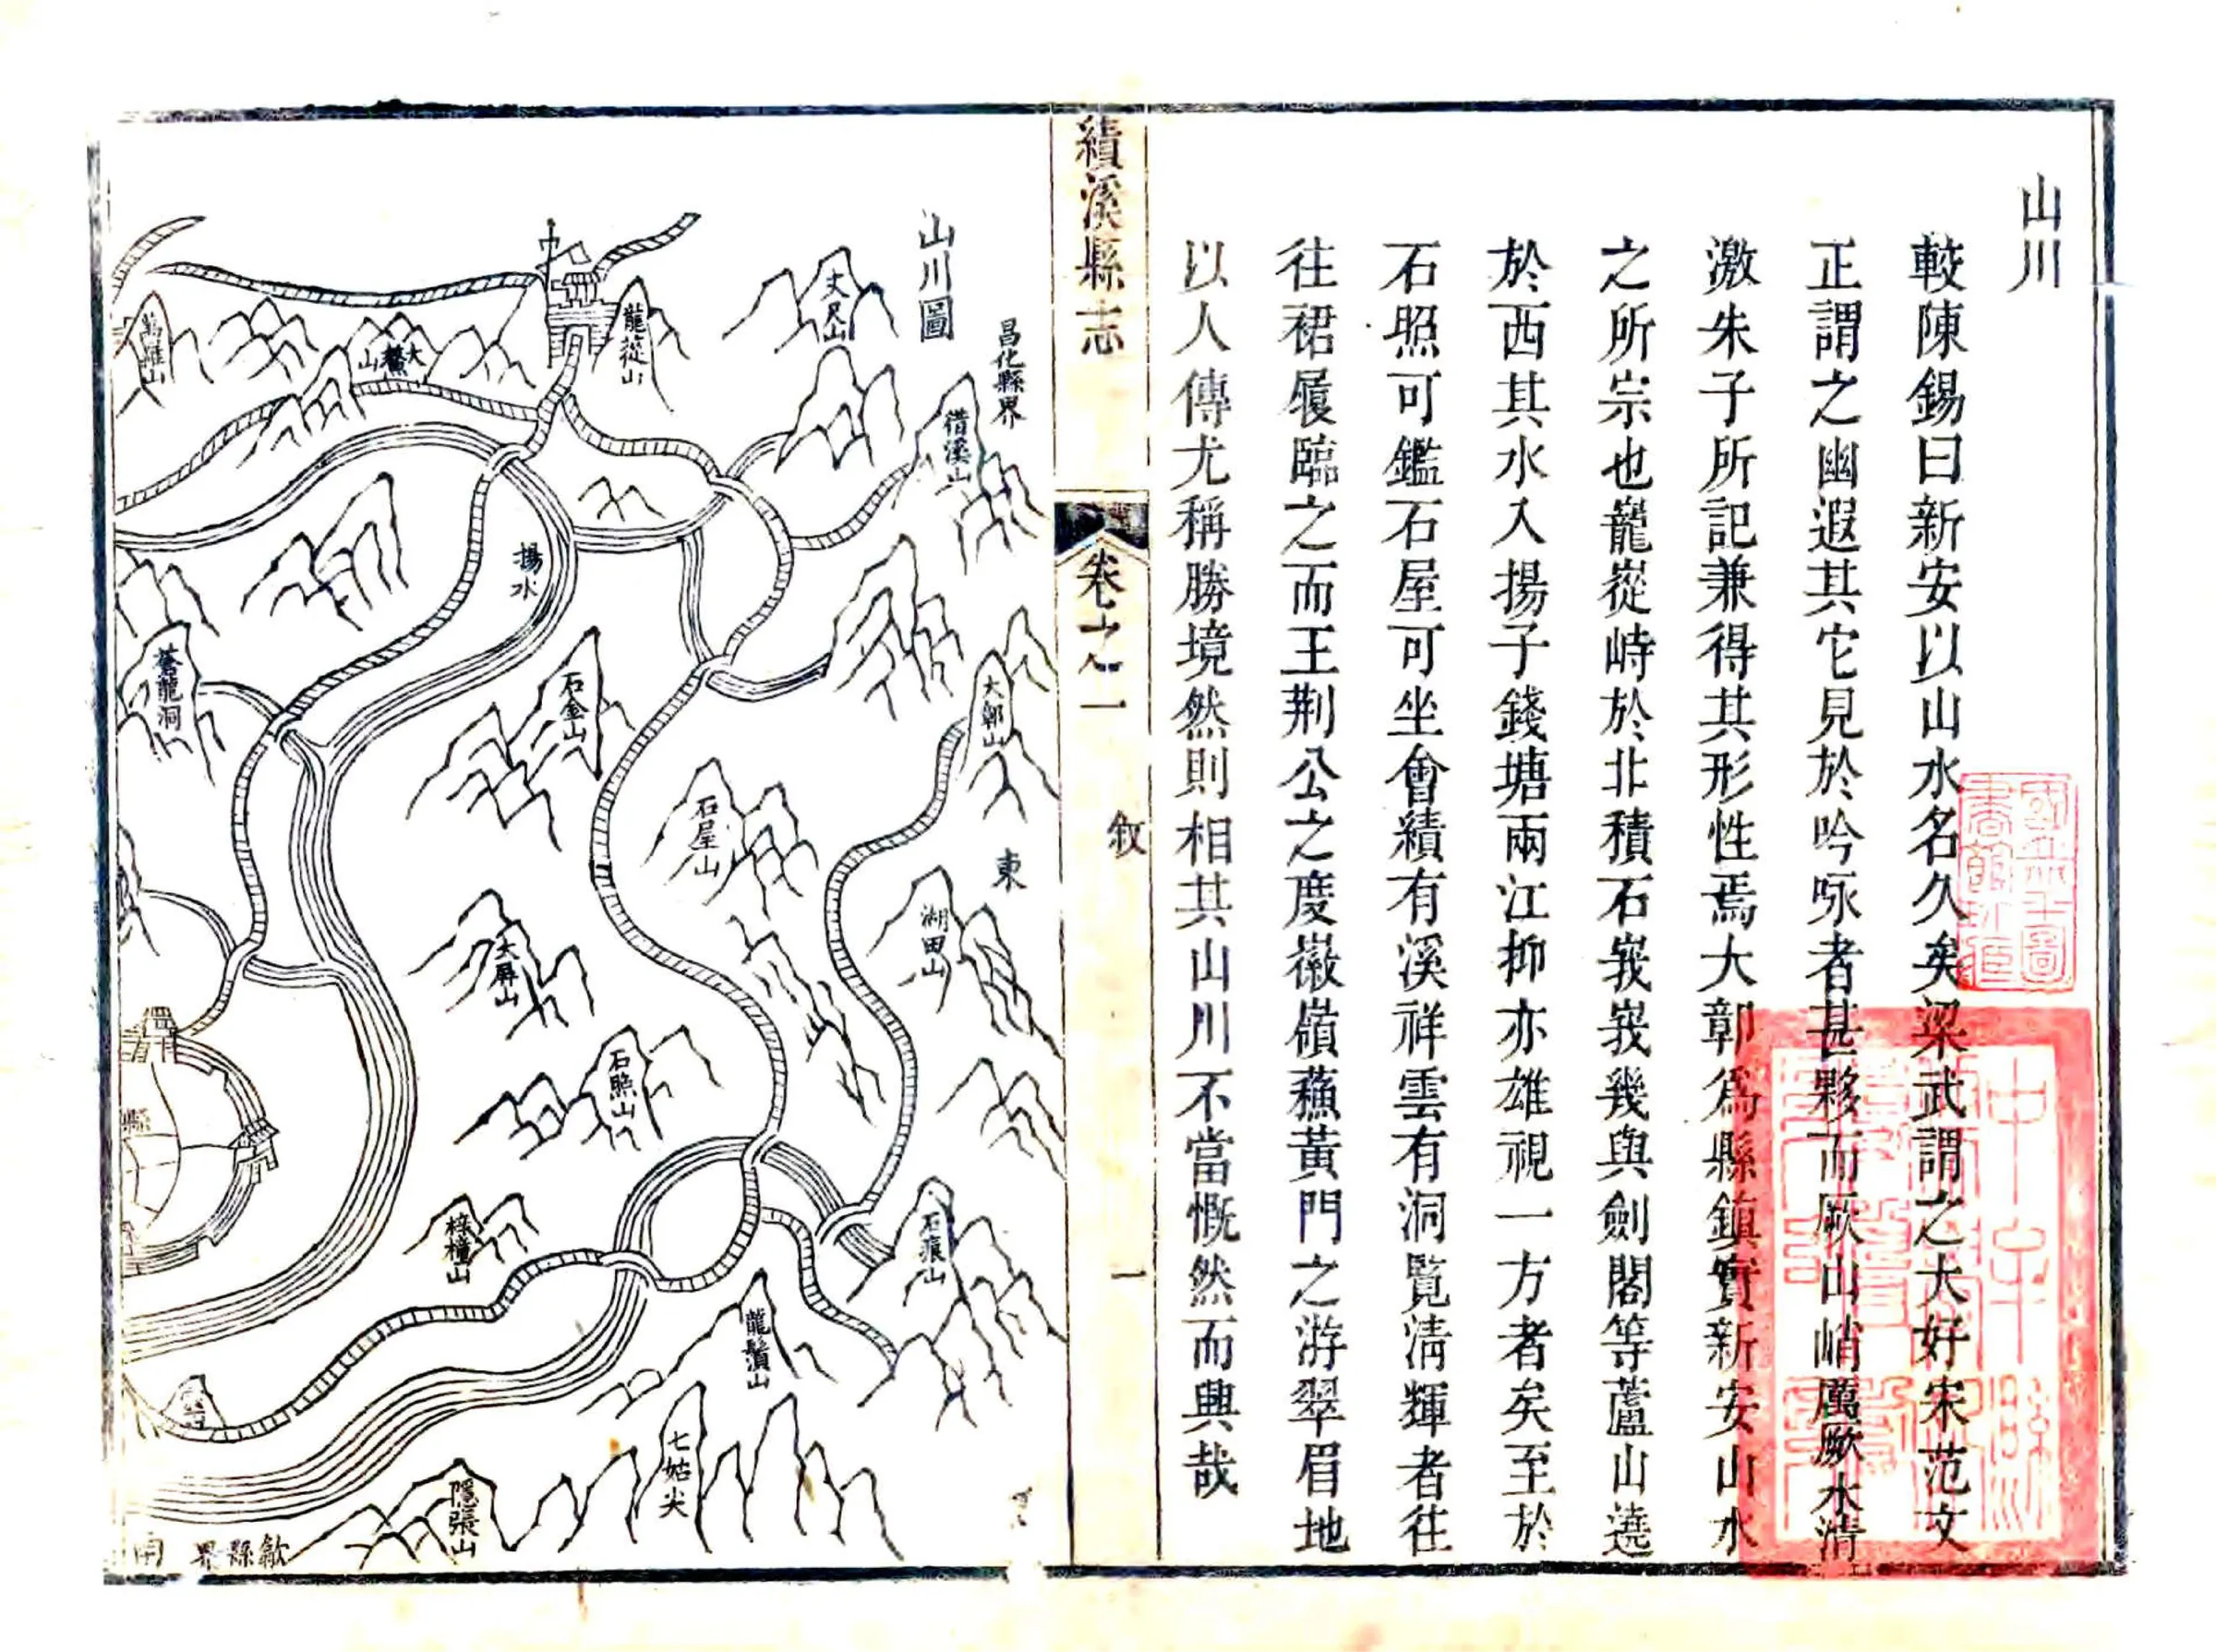 山川
較陳錫曰新安以山水名久矣梁武謂之大好宋范文
正謂之幽遐其它見於吟咏者甚夥而厥山峭厲厥水清
激朱子所記兼得其形性焉大鄣爲縣鎮實新安山水
之所宗也巃嵷峙於北積石峩峩幾與劍閣等蘆山遶
於西其水入揚子錢塘兩江抑亦雄視一方者矣至於
石照可鑑石屋可坐會績有溪祥雲有洞覽清輝者往
往裙屐臨之而王荆公之度徽嶺蘓黃門之游翠眉地
以人傳尤稱勝境然則相其山川不當慨然而興哉
績溪縣志
卷之一
敘
一
山川圖
昌化縣界
丈尺山
龍嵸山
大鰲山
借溪山
揚水
大鄣山
石金山
蒼龍洞
石屋山
東
湖田山
大屏山
石照山
縣
梓橦山
石痕山
龍鬚山
七姑尖
隱張山
歙縣界